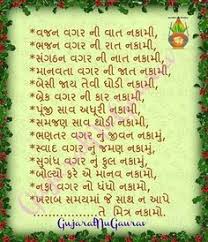 *વજન વગર ની વાત નકામી,
*ભજન વગર ની રાત નકામી,
*સંગઠન વગર ની નાત નકામી,
*માનવતા વગર ની જાત નકામી,
*બેસી જાય તેવી ઘોડી નકામી,
*બ્રેક વગર ની કાર નકામી,
*પૂંજી સાવ અધૂરી નકામી,
*સમજણ સાવ થોડી નકામી,
*ભણતર વગર નું જીવન નકામું,
*સ્વાદ વગર નું જમણ નકામું,
*સુગંધ વગર નું ફુલ નકામું,
*બોલ્યો ફરે એ માનવ નકામો,
*નફા વગર નો ધંધો નકામો,
*ખરાબ સમયમાં જે સાથ ન આપે
તે મિત્ર નકામો.
GujaratNuGaurav